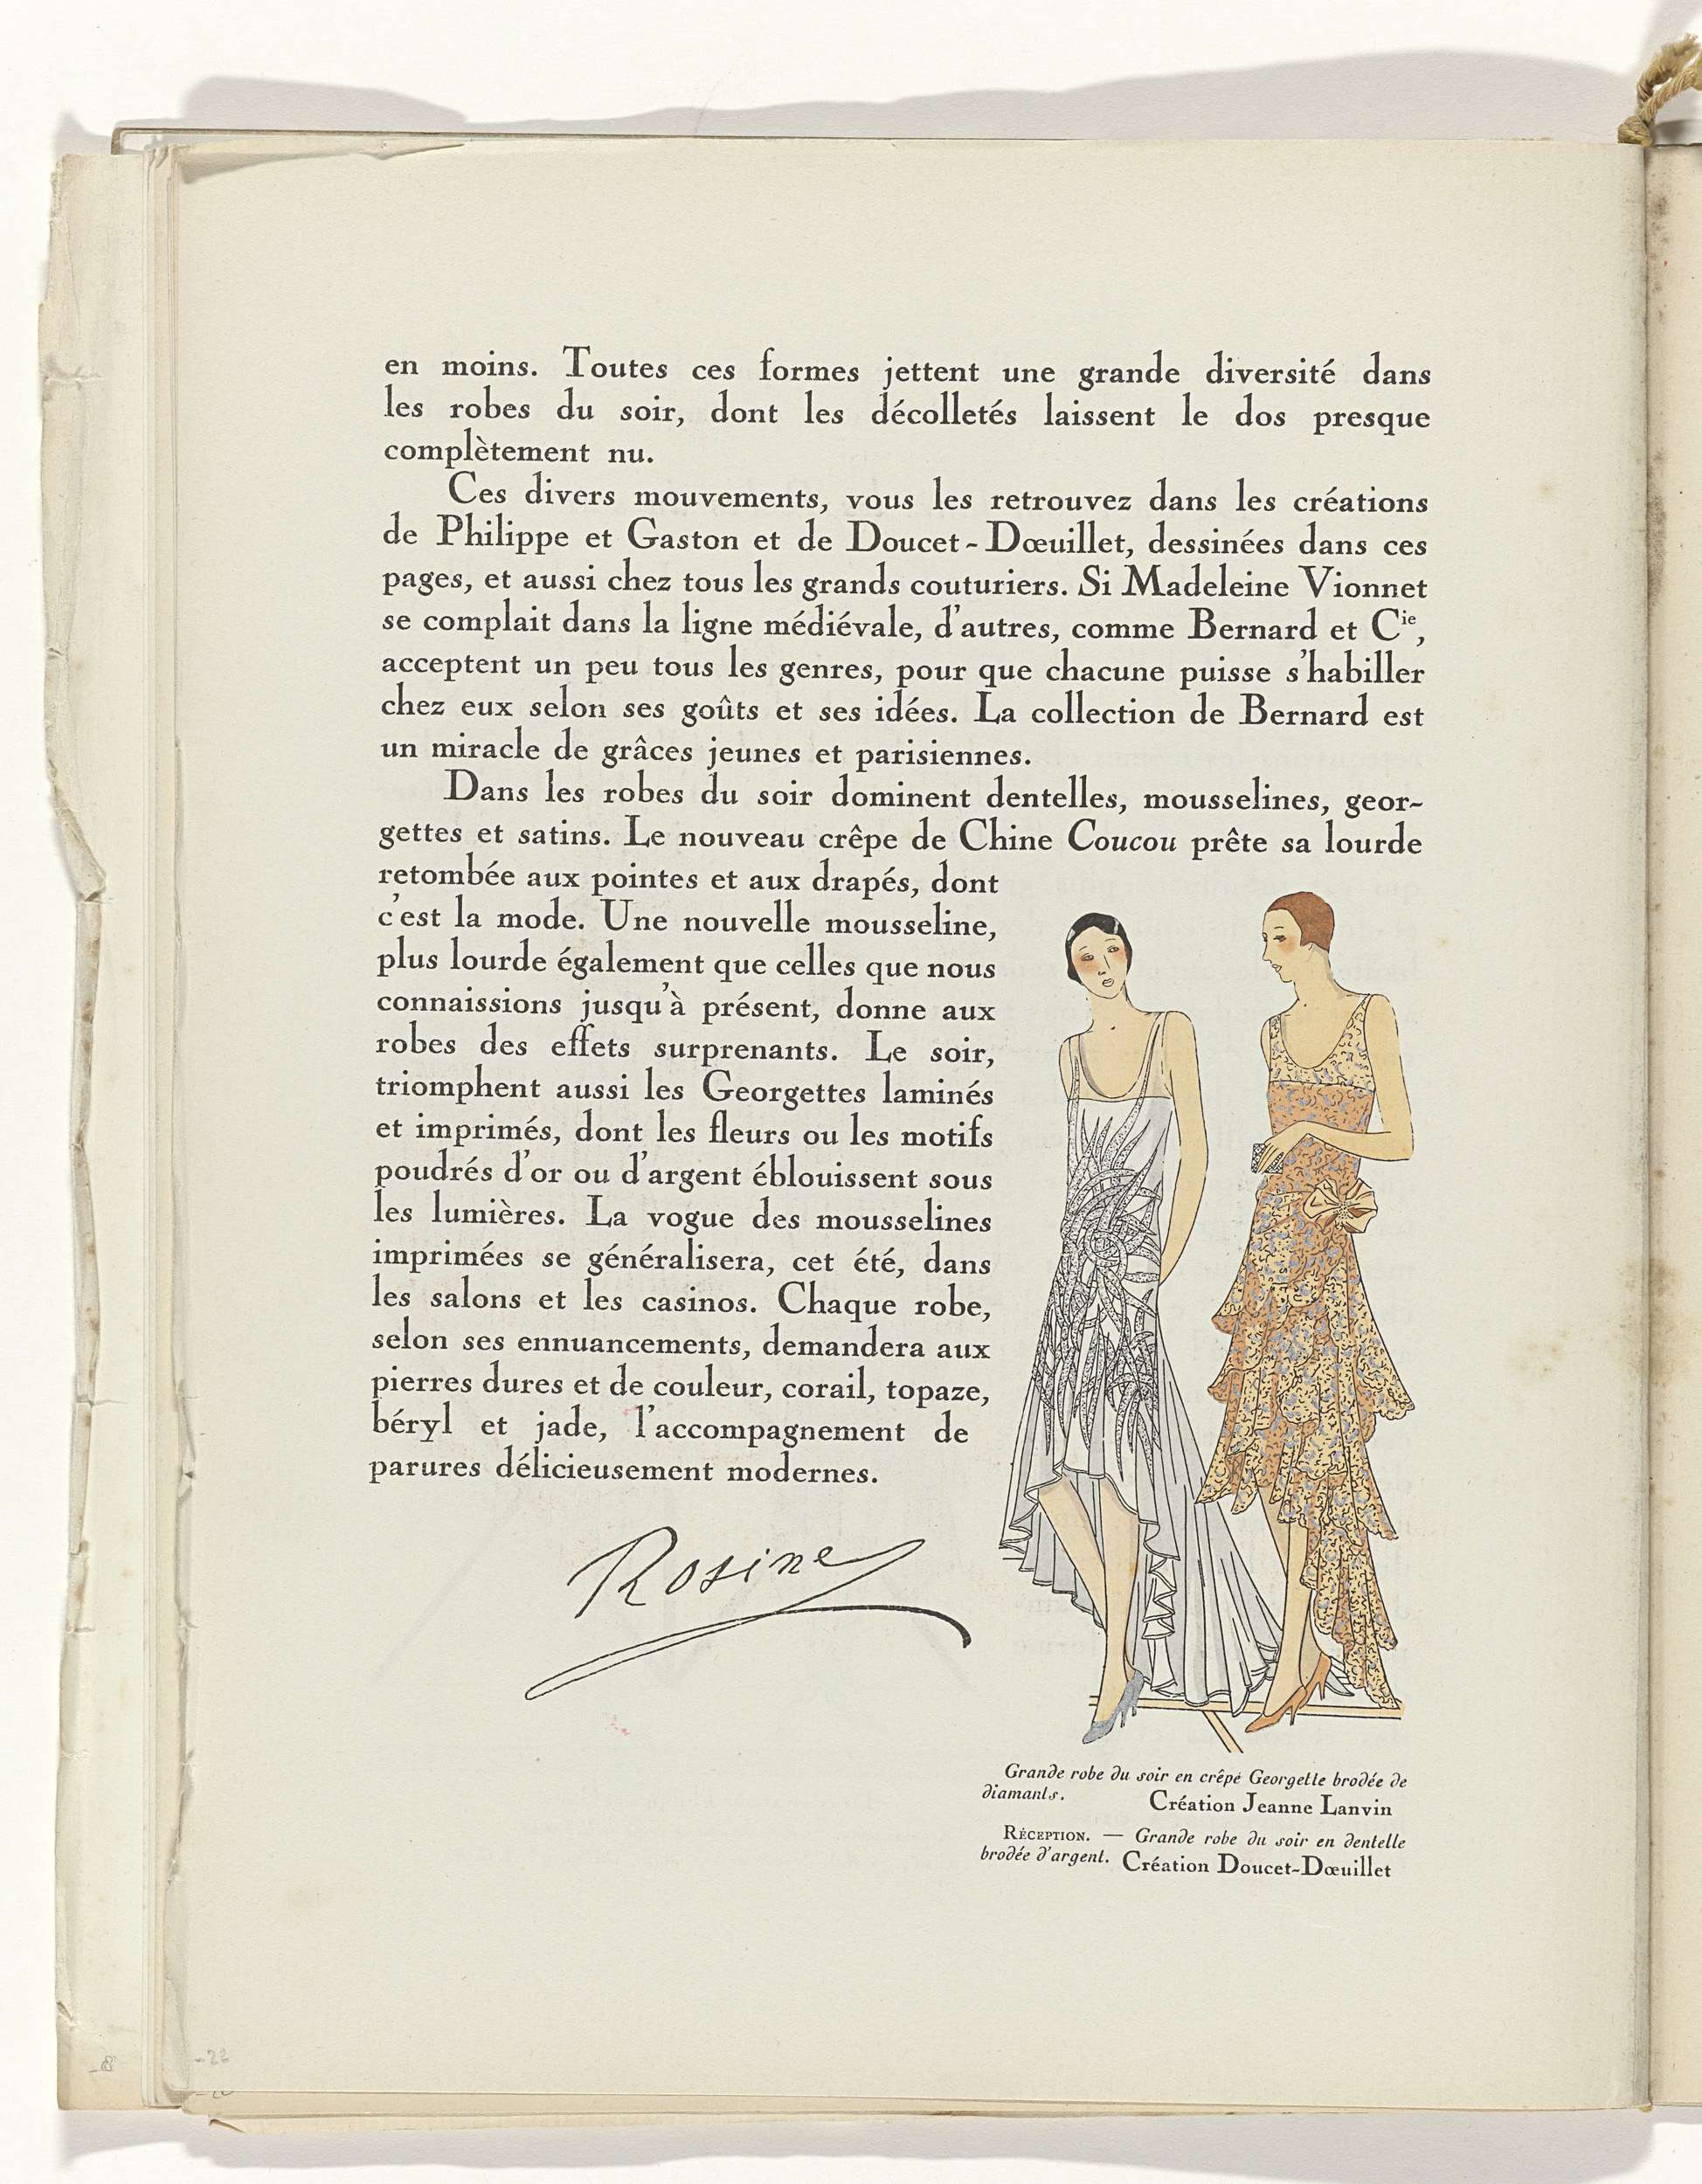 en moins. Toutes ces formes jettent une grande diversité dans
les robes du soir, dont les décolletés laissent le dos presque
complètement nu.
Ces divers mouvements, vous les retrouvez dans les créations
de Philippe et Gaston et de Doucet-Dœuillet, dessinées dans ces
pages, et aussi chez tous les grands couturiers. Si Madeleine Vionnet
se complait dans la ligne médiévale, d'autres, comme Bernard et Cie,
acceptent un peu tous les genres, pour que chacune puisse s'habiller
chez eux selon ses goûts et ses idées. La collection de Bernard est
un miracle de grâces jeunes et parisiennes.
Dans les robes du soir dominent dentelles, mousselines, geor-
gettes et satins. Le nouveau crêpe de Chine Coucou prête sa lourde
retombée aux pointes et aux drapés, dont
c'est la mode. Une nouvelle mousseline,
plus lourde également que celles que nous
connaissions jusqu'à présent, donne aux
robes des effets surprenants. Le soir,
triomphent aussi les Georgettes laminés
et imprimés, dont les fleurs ou les motifs
poudrés d'or ou d'argent éblouissent sous
les lumières. La vogue des mousselines
imprimées se généralisera, cet été, dans
les salons et les casinos. Chaque robe,
selon ses ennuancements, demandera aux
pierres dures et de couleur, corail, topaze,
béryl et jade, l'accompagnement de
parures délicieusement modernes.
Rosine
Grande robe du soir en crêpe Georgette brodée de
diamants. Création Jeanne Lanvin
RÉCEPTION. — Grande robe du soir en dentelle
brodée d'argent. Création Doucet-Dœuillet
-22